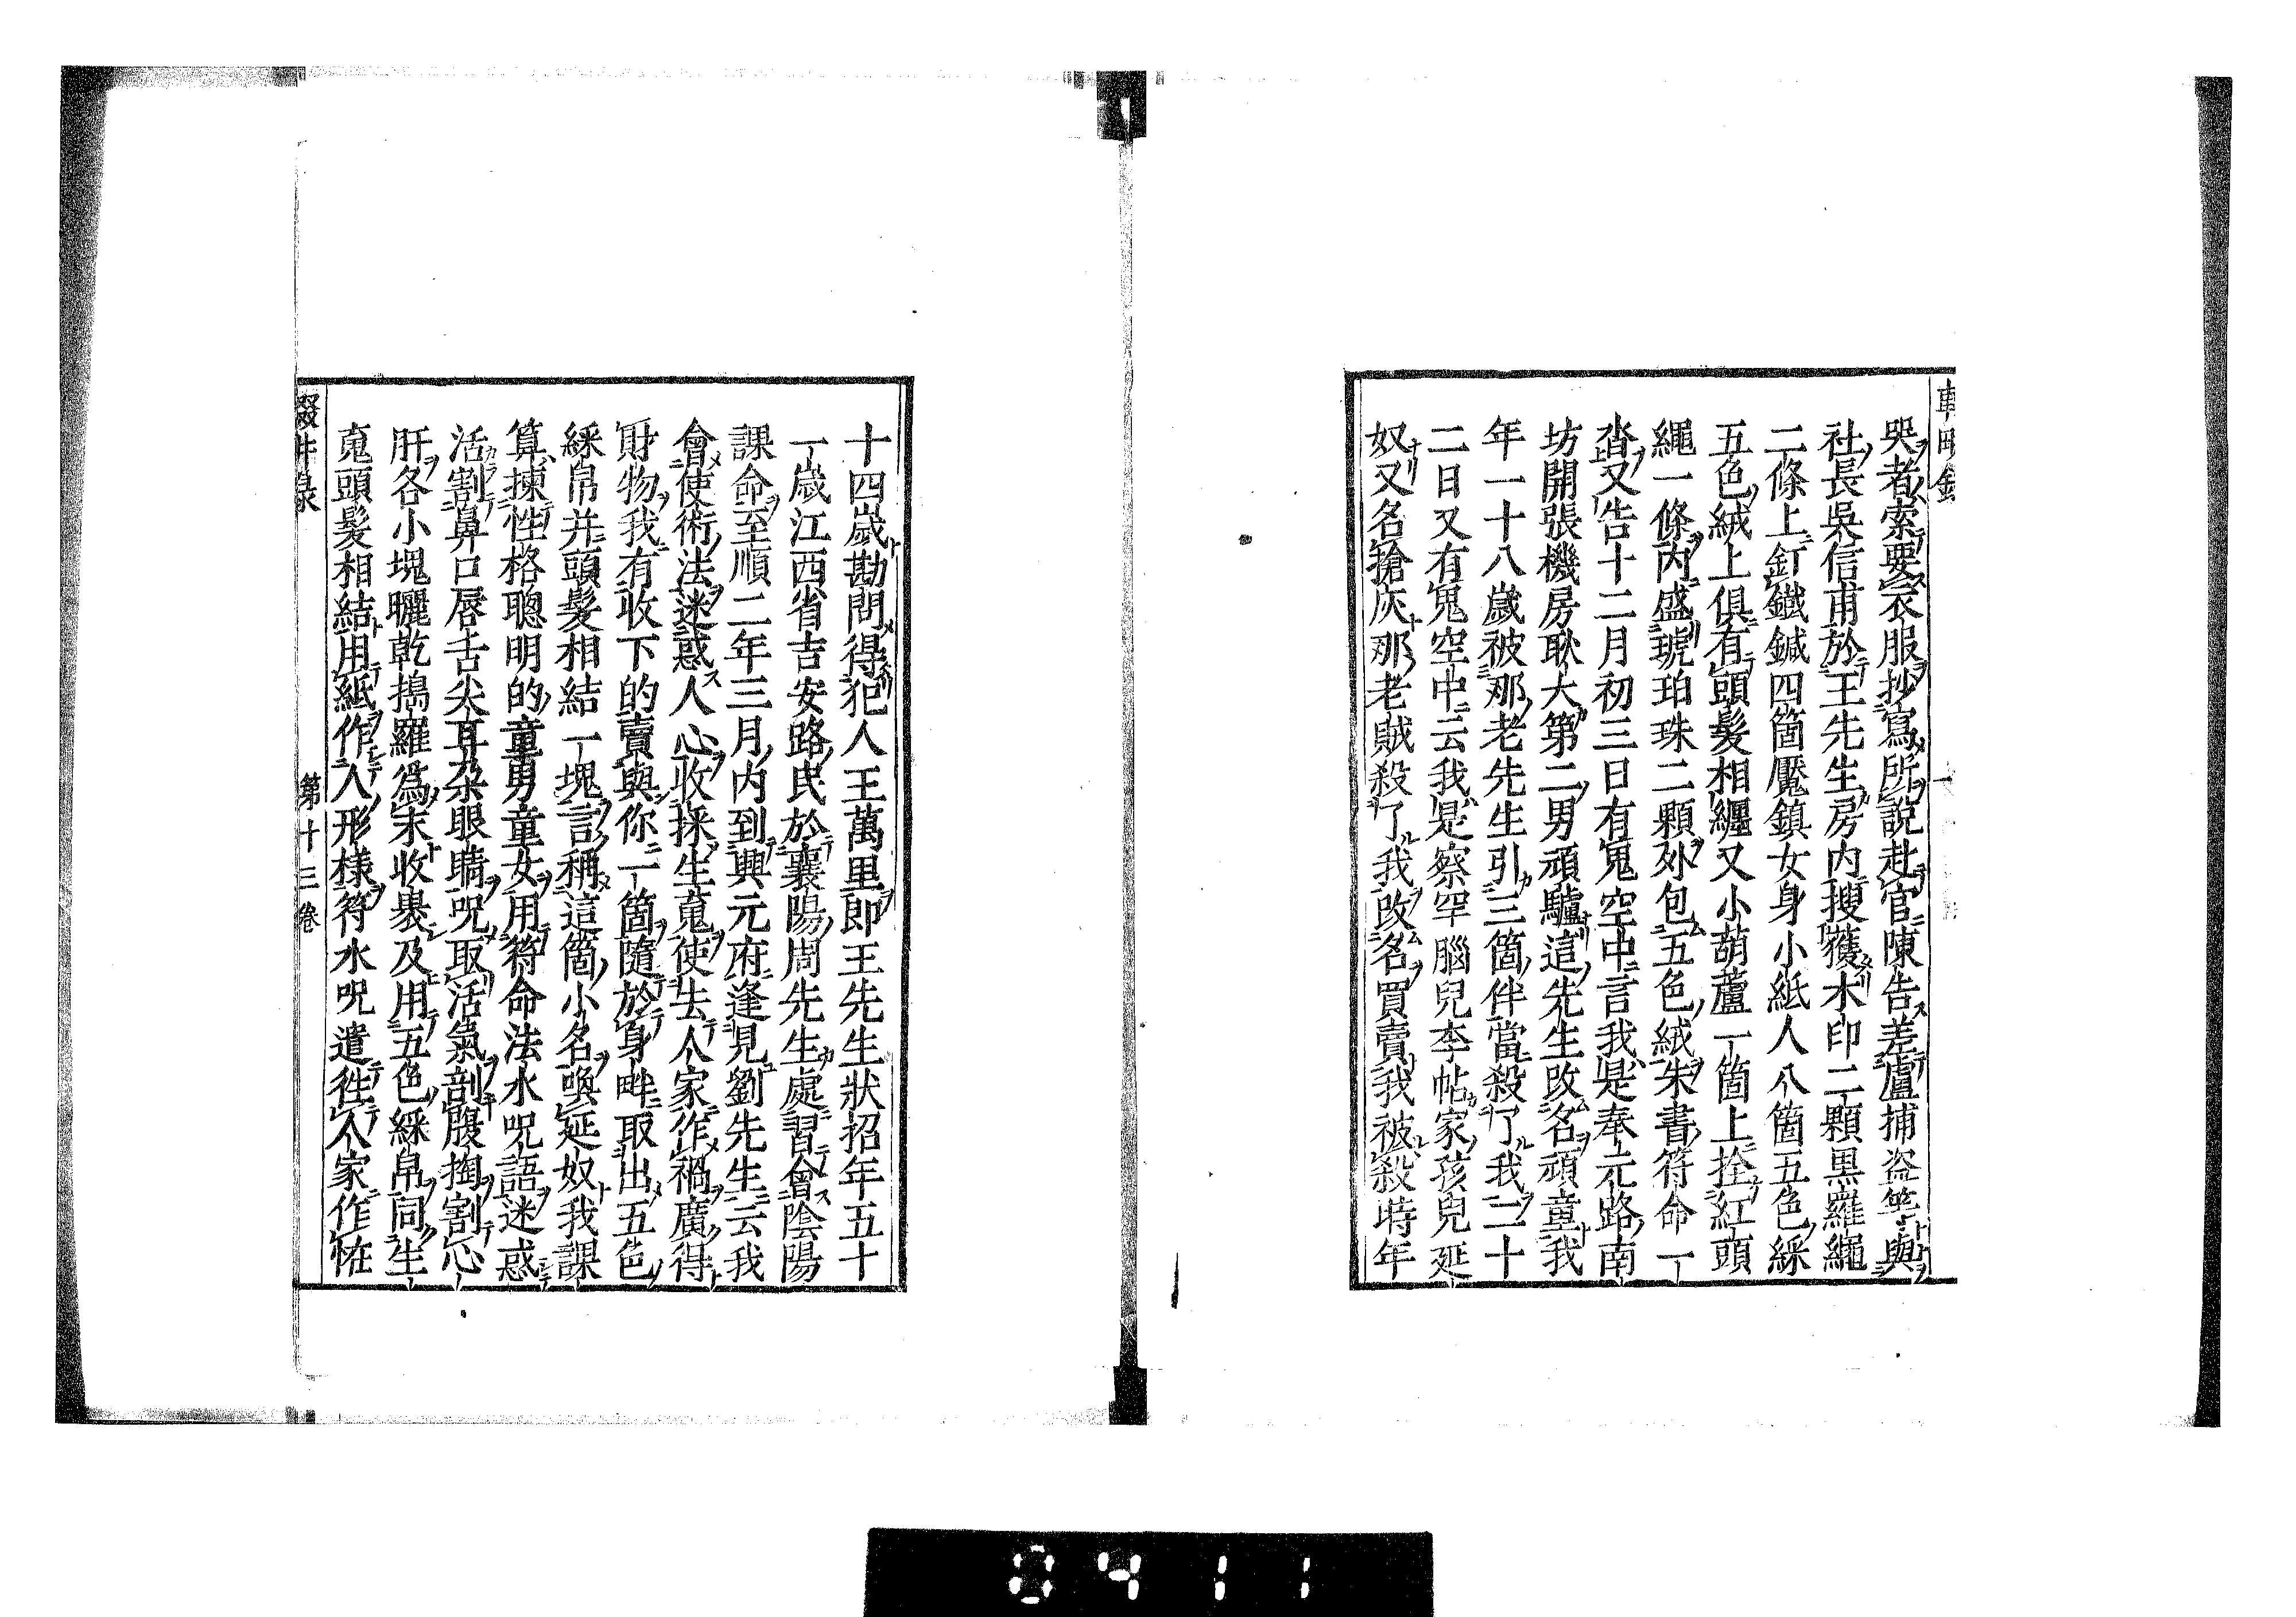 哭者索要衣服抄寫所說赴官陳告差盧捕盗等與
社長吳信甫於王先生房内搜獲木印二顆黒羅繩
二條上釘鐵鍼四箇魘鎮女身小紙人八箇五色綵
五色絨上俱有頭髮相纒又小葫蘆一箇上拴紅頭
繩一條内盛琥珀珠二顆外包五色絨朱書符命一
沓又告十二月初三日有鬼空中言我是奉元路南
坊開張機房耿大第二男頑驢這先生改名頑童我
年一十八歲被那老先生引三箇伴當殺了我二十
二日又有鬼空中云我是察罕腦兒李帖家孩兒延
奴又名搶灰那老賊殺了我改名買賣我被殺時年
十四歲勘問得犯人王萬里即王先生狀招年五十
一歲江西省吉安路民於襄陽周先生處習會陰陽
課命至順二年三月内到興元府逢見劉先生云我
會使術法迷惑人心收採生䰟使去人家作禍廣得
財物我有收下的賣與你一箇隨於身畔取出五色
綵帛并頭髮相結一塊言稱這箇小名喚延奴我課
算揀性格聰明的童男童女用符命法水呪語迷惑
活割鼻口唇舌尖耳朶眼睛呪取活氣剖腹掏割心
肝各小塊曬乾搗羅爲末收裹及用五色綵帛同生
䰟頭髮相結用紙作人形樣符水呪遣徃人家作恠
第十三卷
0411